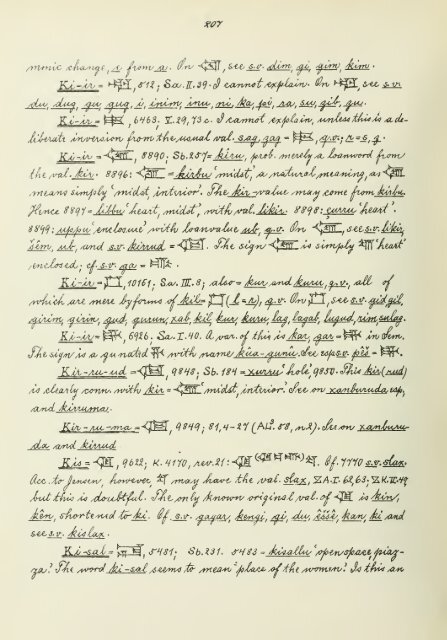 207
monic change, i from a. On 𒁶, see s.v. dim, gi, gim, kim.
Ki-ir = , 512; Sa. II. 39. I cannot explain. On , see s.v.
du, dug, gu, gug, i, inim, inu, ni, ka, , ra, su, gib, gus.
Ki-ir = , 6463. V. 29, 73 c. I cannot explain, unless this is a de-
liberate inversion from the usual val. sag, zag = , q.v.; r = s, g.
Ki-ir = , 8890, Sb. 257 = kiru, prob. merely a loanword from
the val. kir. 8896: = kirbu 'midst,' a natural meaning, as
means simply 'midst, interior'. The kir-value may come from kirbu.
Hence 8897 = libbu 'heart, midst', with val. likir. 8898: çurru 'heart'.
8899: uppu 'enclosure' with loanvalue ub, q.v. On , see s.v. likir,
šêm, ub, and s.v. kirrud = . The sign is simply 'heart'
enclosed; cf. s.v. ga = .
Ki-ir = , 10151; Sa. III. 8; also = kur and kuru, q.v., all of
which are mere byforms of kil = (l = r), q.v. On , see s.v. gid, gil,
girim, girin, gud, gurun, xab, kil, kur, kuru, lag, lagab, lugud, rim,
Ki-ir = , 6926. Sa. I. 40. A var. of this is kar, gar = in Sem.
The sign is a gunated with name kûa-gunû. See esp. s.v. pêš = .
Kir-ru-ud = , 9848; Sb. 184 = xurru 'hole' 9850. This kir(rud)
is clearly conn. with kir = 'midst, interior'. See on xanburuda esp.
and kirruma.
Kir-ru-ma = , 9849; 81, 4-27 (AL³. 58, n.2). See on xanburu-
da and kirrud.
Kis = , 9622; K. 4170, rev. 21: . Cf. 7770 s.v. slax.
Acc. to Jensen, however, may have the val. slax, Z.A. I. 62, 63; Z.K. II. 49
but this is doubtful. The only known original val. of is kin,
kên, shortened to ki. Cf. s.v. gagar, kengi, gi, du, êššê, kan, ki and
see s.v. kislax.
Ki-sal = , 5481; Sb. 231. 5483 = kisallu 'open space, piaz-
za.' The word ki-sal seems to mean 'place of the women.' Is this an